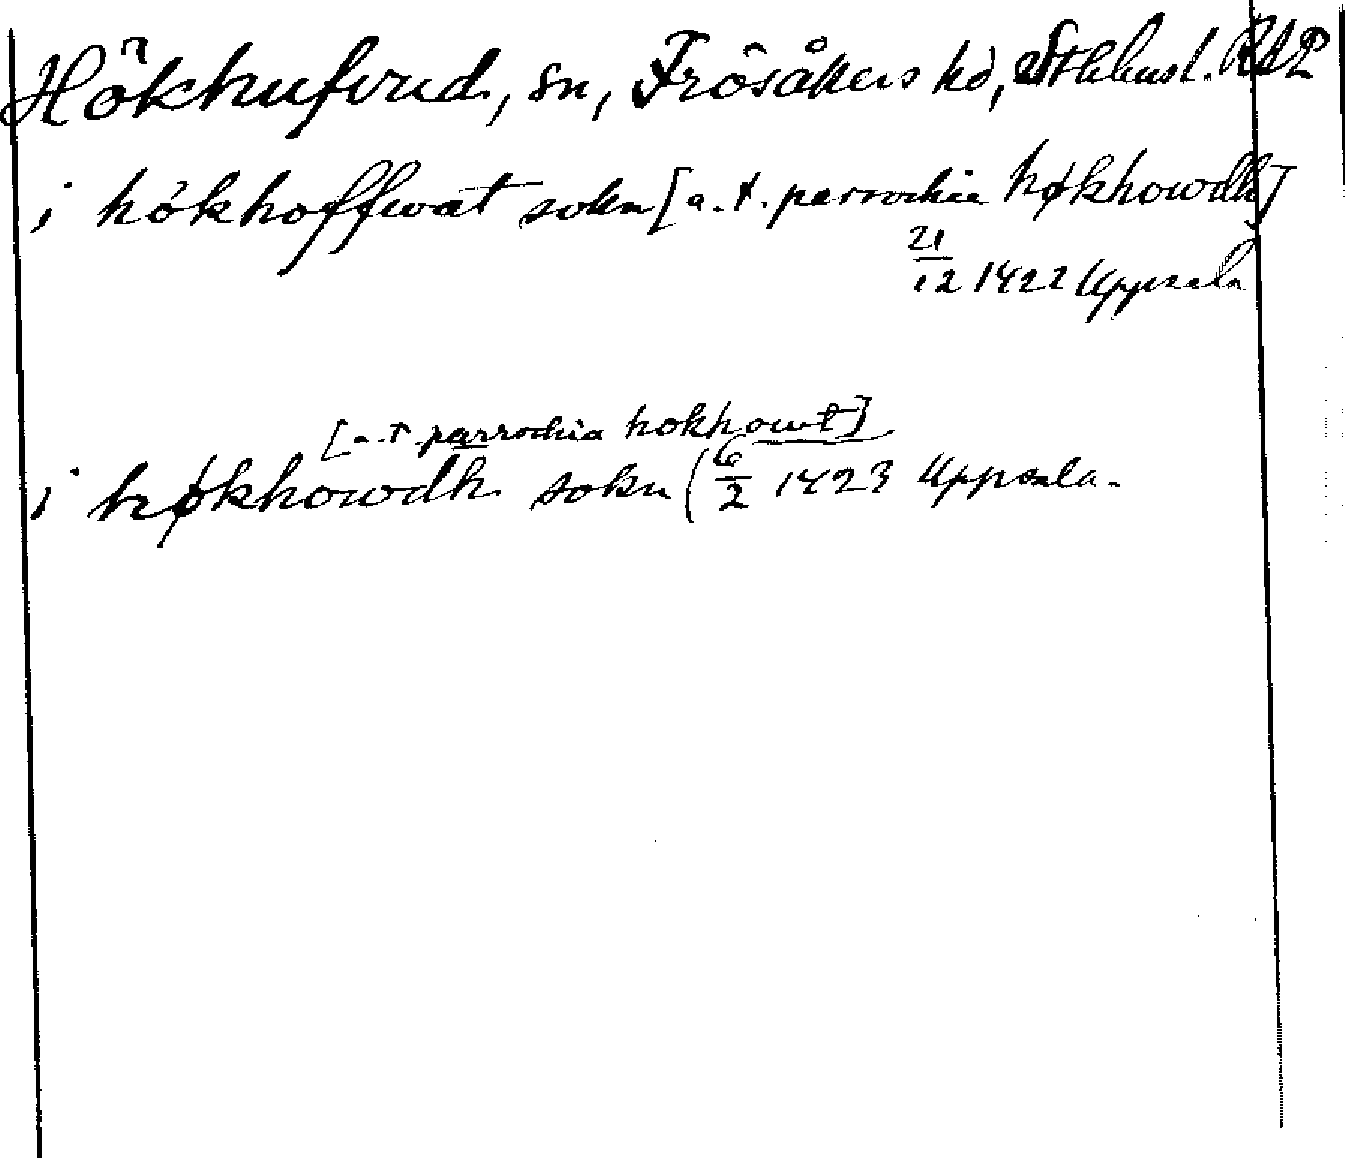 Hökhufvud, sn, Frösåkers hd, Sthlms l. RAP
i hökhoffwat sokn [a. t. parrochia høkhowdh]
21/12 1422 Uppsala
[a. t. parrochia hokhowt]
i høkhowdh sokn (6/2 1423 Uppsala.